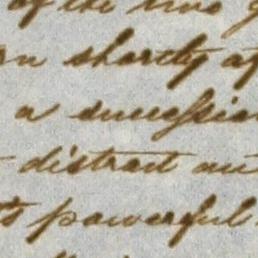 of the two
on shortly af
a succession
distract an
powerful